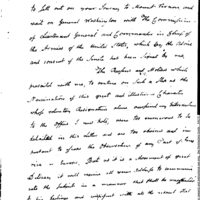 to set out on your Journey to Mount Vernon and
wait on General Washington with the Commission
of Lieutenant General and Commander in Chief of
the Armies of the United States, which by the Advice
and consent of the Senate has been signed by me.
The Reasons and Motives which
prevailed with me, to venture on such a Step as the
Nomination of this great and illustrious Character
whose voluntary Resignation alone occasioned my Introduction
to the Office I now hold, were too numerous to be
detailed in this Letter and are too obvious and im-
portant to escape the Observation of any Part of Ame-
rica or Europe. But as it is a Movement of great
Delicacy, it will require all your Address to communicate
the Subject in a manner that shall be
to his feelings and consistent with all the respect that